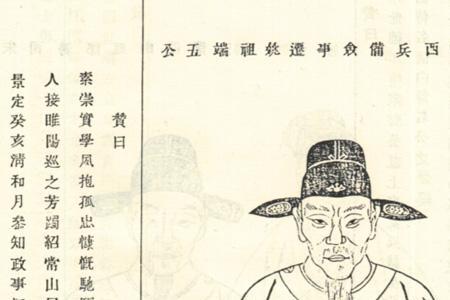 西兵備僉事遷姚祖端五公
贊曰
素崇實學夙抱孤忠慷慨馳
人接睢陽巡之芳躅紹常山
景定癸亥清和月參知政事